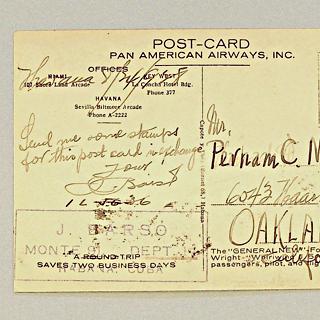 POST-CARD
PAN AMERICAN AIRWAYS, INC.
OFFICES
Havana 8/26/28
MIAMI
KEY WEST
107 Shore Land Arcade
La Concha Hotel Bdg.
Phone 377
HAVANA
Sevilla-Biltmore Arcade
Phone A-2222
Send me some stamps
for this post card in exchange
Your,
J Barso
J. BARSO
MONTE 91 DEPT.
HABANA, CUBA
A ROUND TRIP
SAVES TWO BUSINESS DAYS
Mr.
Pernam C. M
6043
OAKLA
The "GENERAL NEW" Fo
Wright "Whirlwind"
passengers, pilot, and